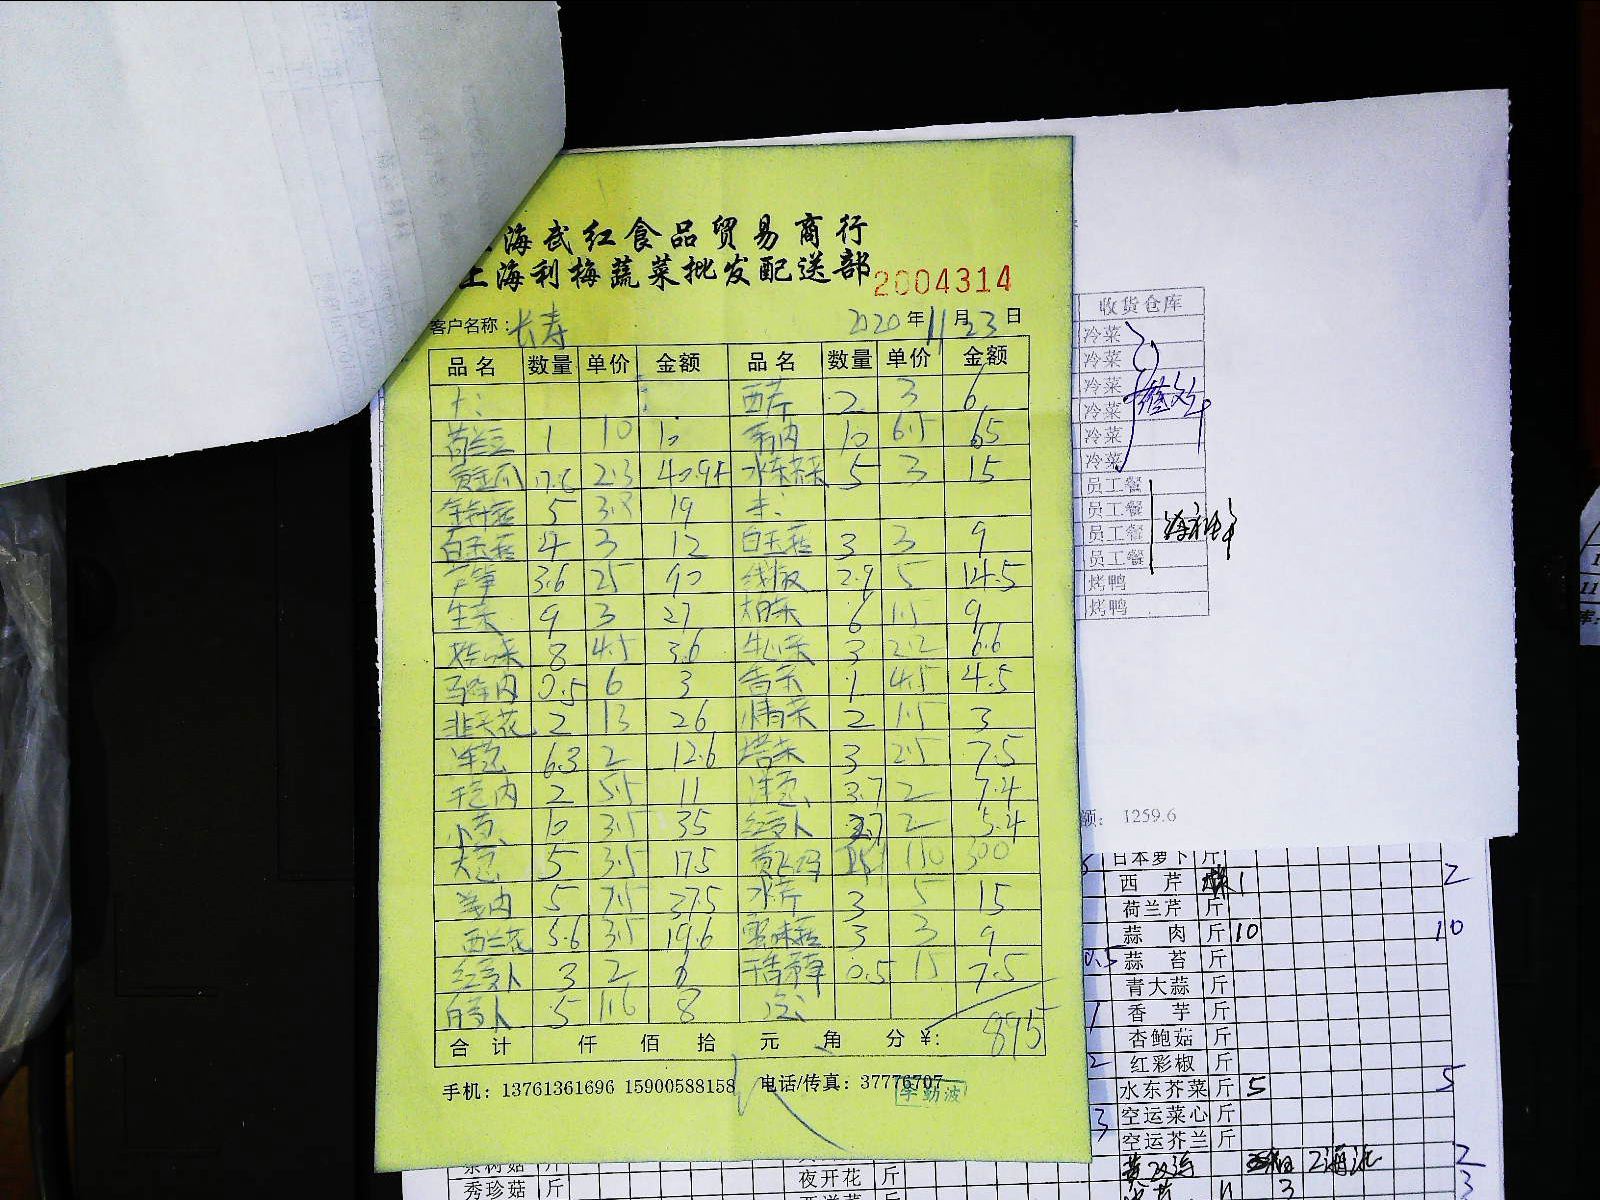 海武红食品贸易商行
上海利梅蔬菜批发配送部
2004314
客户名称：长寿 2020年11月23日
品名 数量 单价 金额 品名 数量 单价 金额
西芹 2 3 6
荷兰豆 1 10 10 蒜肉 10 6.5 65
黄金瓜 17.6 2.3 40.94 水东芥菜 5 3 15
金针菇 5 3.8 19
白玉菇 4 3 12 白玉菇 3 3 9
芦笋 3.6 25 90 线椒 2.9 5 14.5
生菜 9 3 27 6 1.5 9
8 4.5 36 牛心菜 3 2.2 6.6
马蹄肉 0.5 6 3 香菜 1 4.5 4.5
韭菜花 2 13 26 2 1.5 3
洋葱 6.3 2 12.6 塔菜 3 2.5 7.5
干葱肉 2 5.5 11 洋葱 3.7 2 7.4
小葱 10 3.5 35 红萝卜 2.7 2 5.4
大葱 5 3.5 17.5 110 300
姜肉 5 7.5 37.5 水芹 3 5 15
西兰花 5.6 3.5 19.6 蟹味菇 3 3 9
红萝卜 3 2 6 干香茅草 0.5 15 7.5
白萝卜 5 1.6 8
合计 仟 佰 拾 元 角 分 ¥: 895
手机：13761361696 15900588158 电话/传真：37776707
李勤波
收货仓库
冷菜
冷菜
冷菜
冷菜
冷菜
冷菜
员工餐
员工餐
员工餐
员工餐
烤鸭
烤鸭
额： 1259.6
日本萝卜 斤
西芹 1 2
荷兰芹 斤
蒜肉 斤 10 10
0.5 蒜苔 斤
青大蒜 斤
1 香芋 斤
杏鲍菇 斤
2 红彩椒 斤
水东芥菜 斤 5 5
3 空运菜心 斤
空运芥兰 斤
2
3
茶树菇 斤
秀珍菇 斤
夜开花 斤